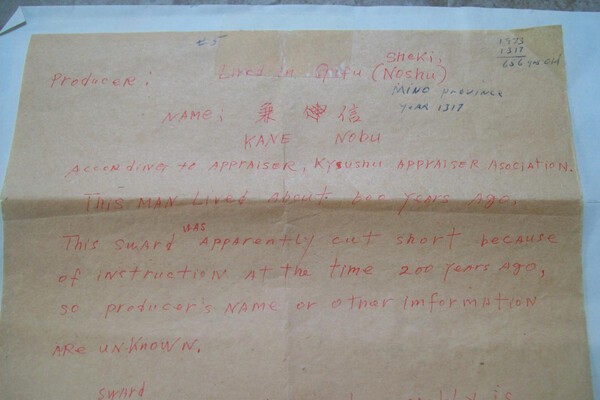 1973
1317
656 yrs old
Shoki,
Producer: Lived in Gifu (Noshu)
MINO PROVINCE
YEAR 1317
NAME: 兼 信
KANE NOBU
ACCORDING to APPRAISER, Kyushu APPRAISER ASOCIATION.
This MAN Lived About 600 years Ago.
This sward WAS Apparently cut short because
of instruction At the time 200 years Ago,
so producer's NAME or other Imformation
ARe unknown.
sward
is